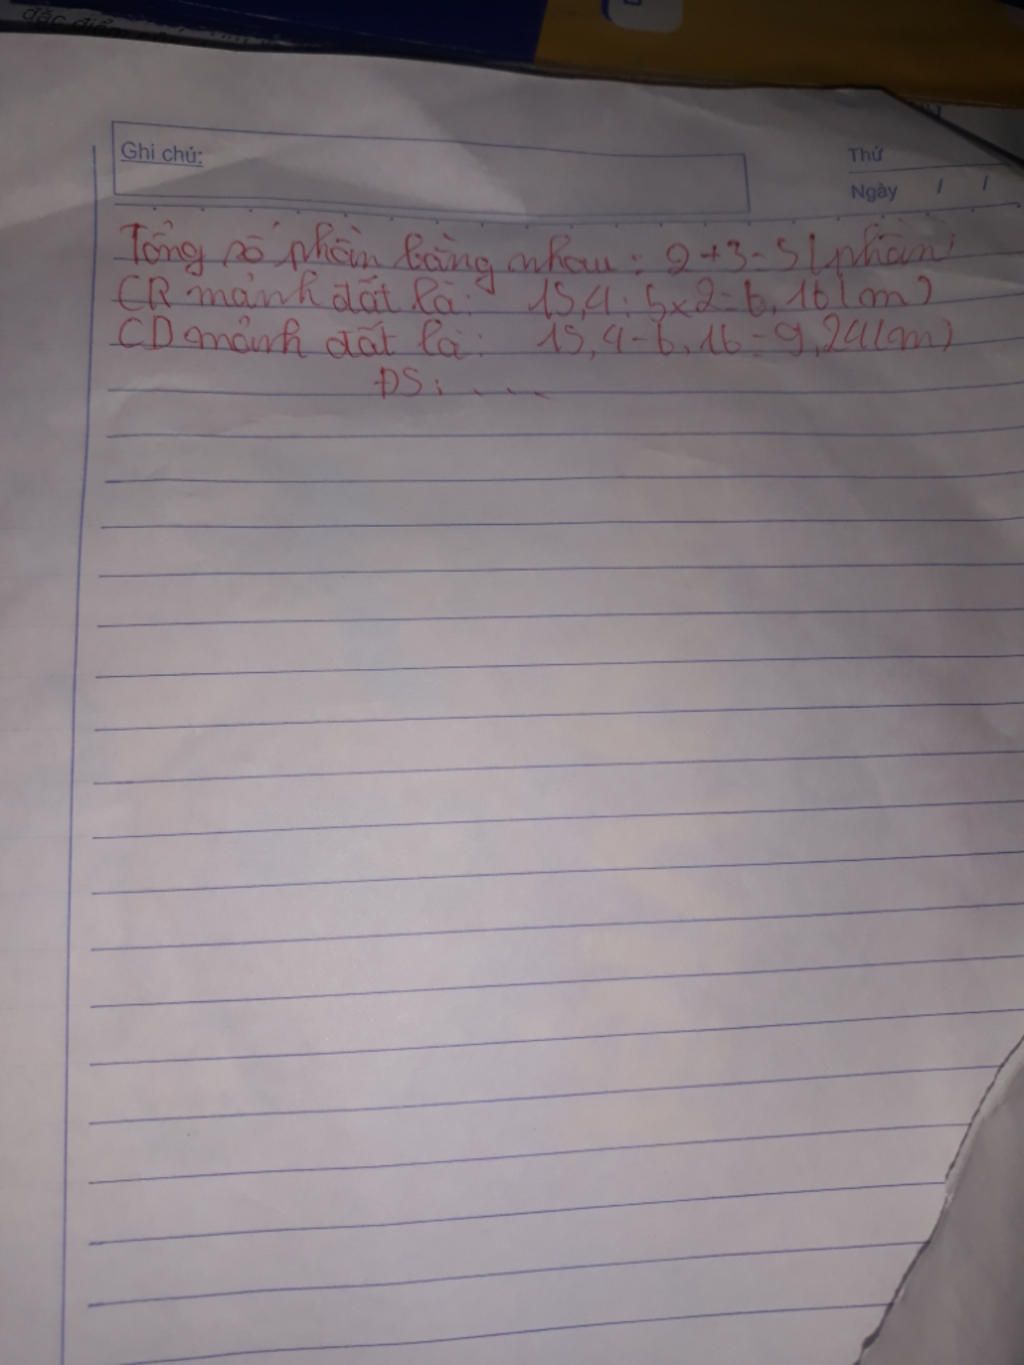 đặc điểm
Ghi chú:
Thứ
Ngày / /
Tổng số phần bằng nhau: 2+3=5(phần)
CR mảnh đất là: 15,4:5x2=6,16(m)
CD mảnh đất là: 15,4-6,16=9,24(m)
ĐS: ....